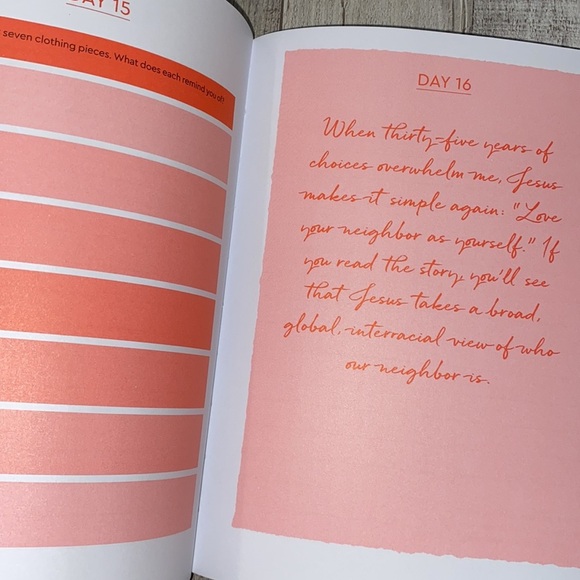 DAY 15
seven clothing pieces. What does each remind you of?
DAY 16
When thirty-five years of
choices overwhelm me, Jesus
makes it simple again: "Love
your neighbor as yourself." If
you read the story, you'll see
that Jesus takes a broad,
global, interracial view of who
our neighbor is.